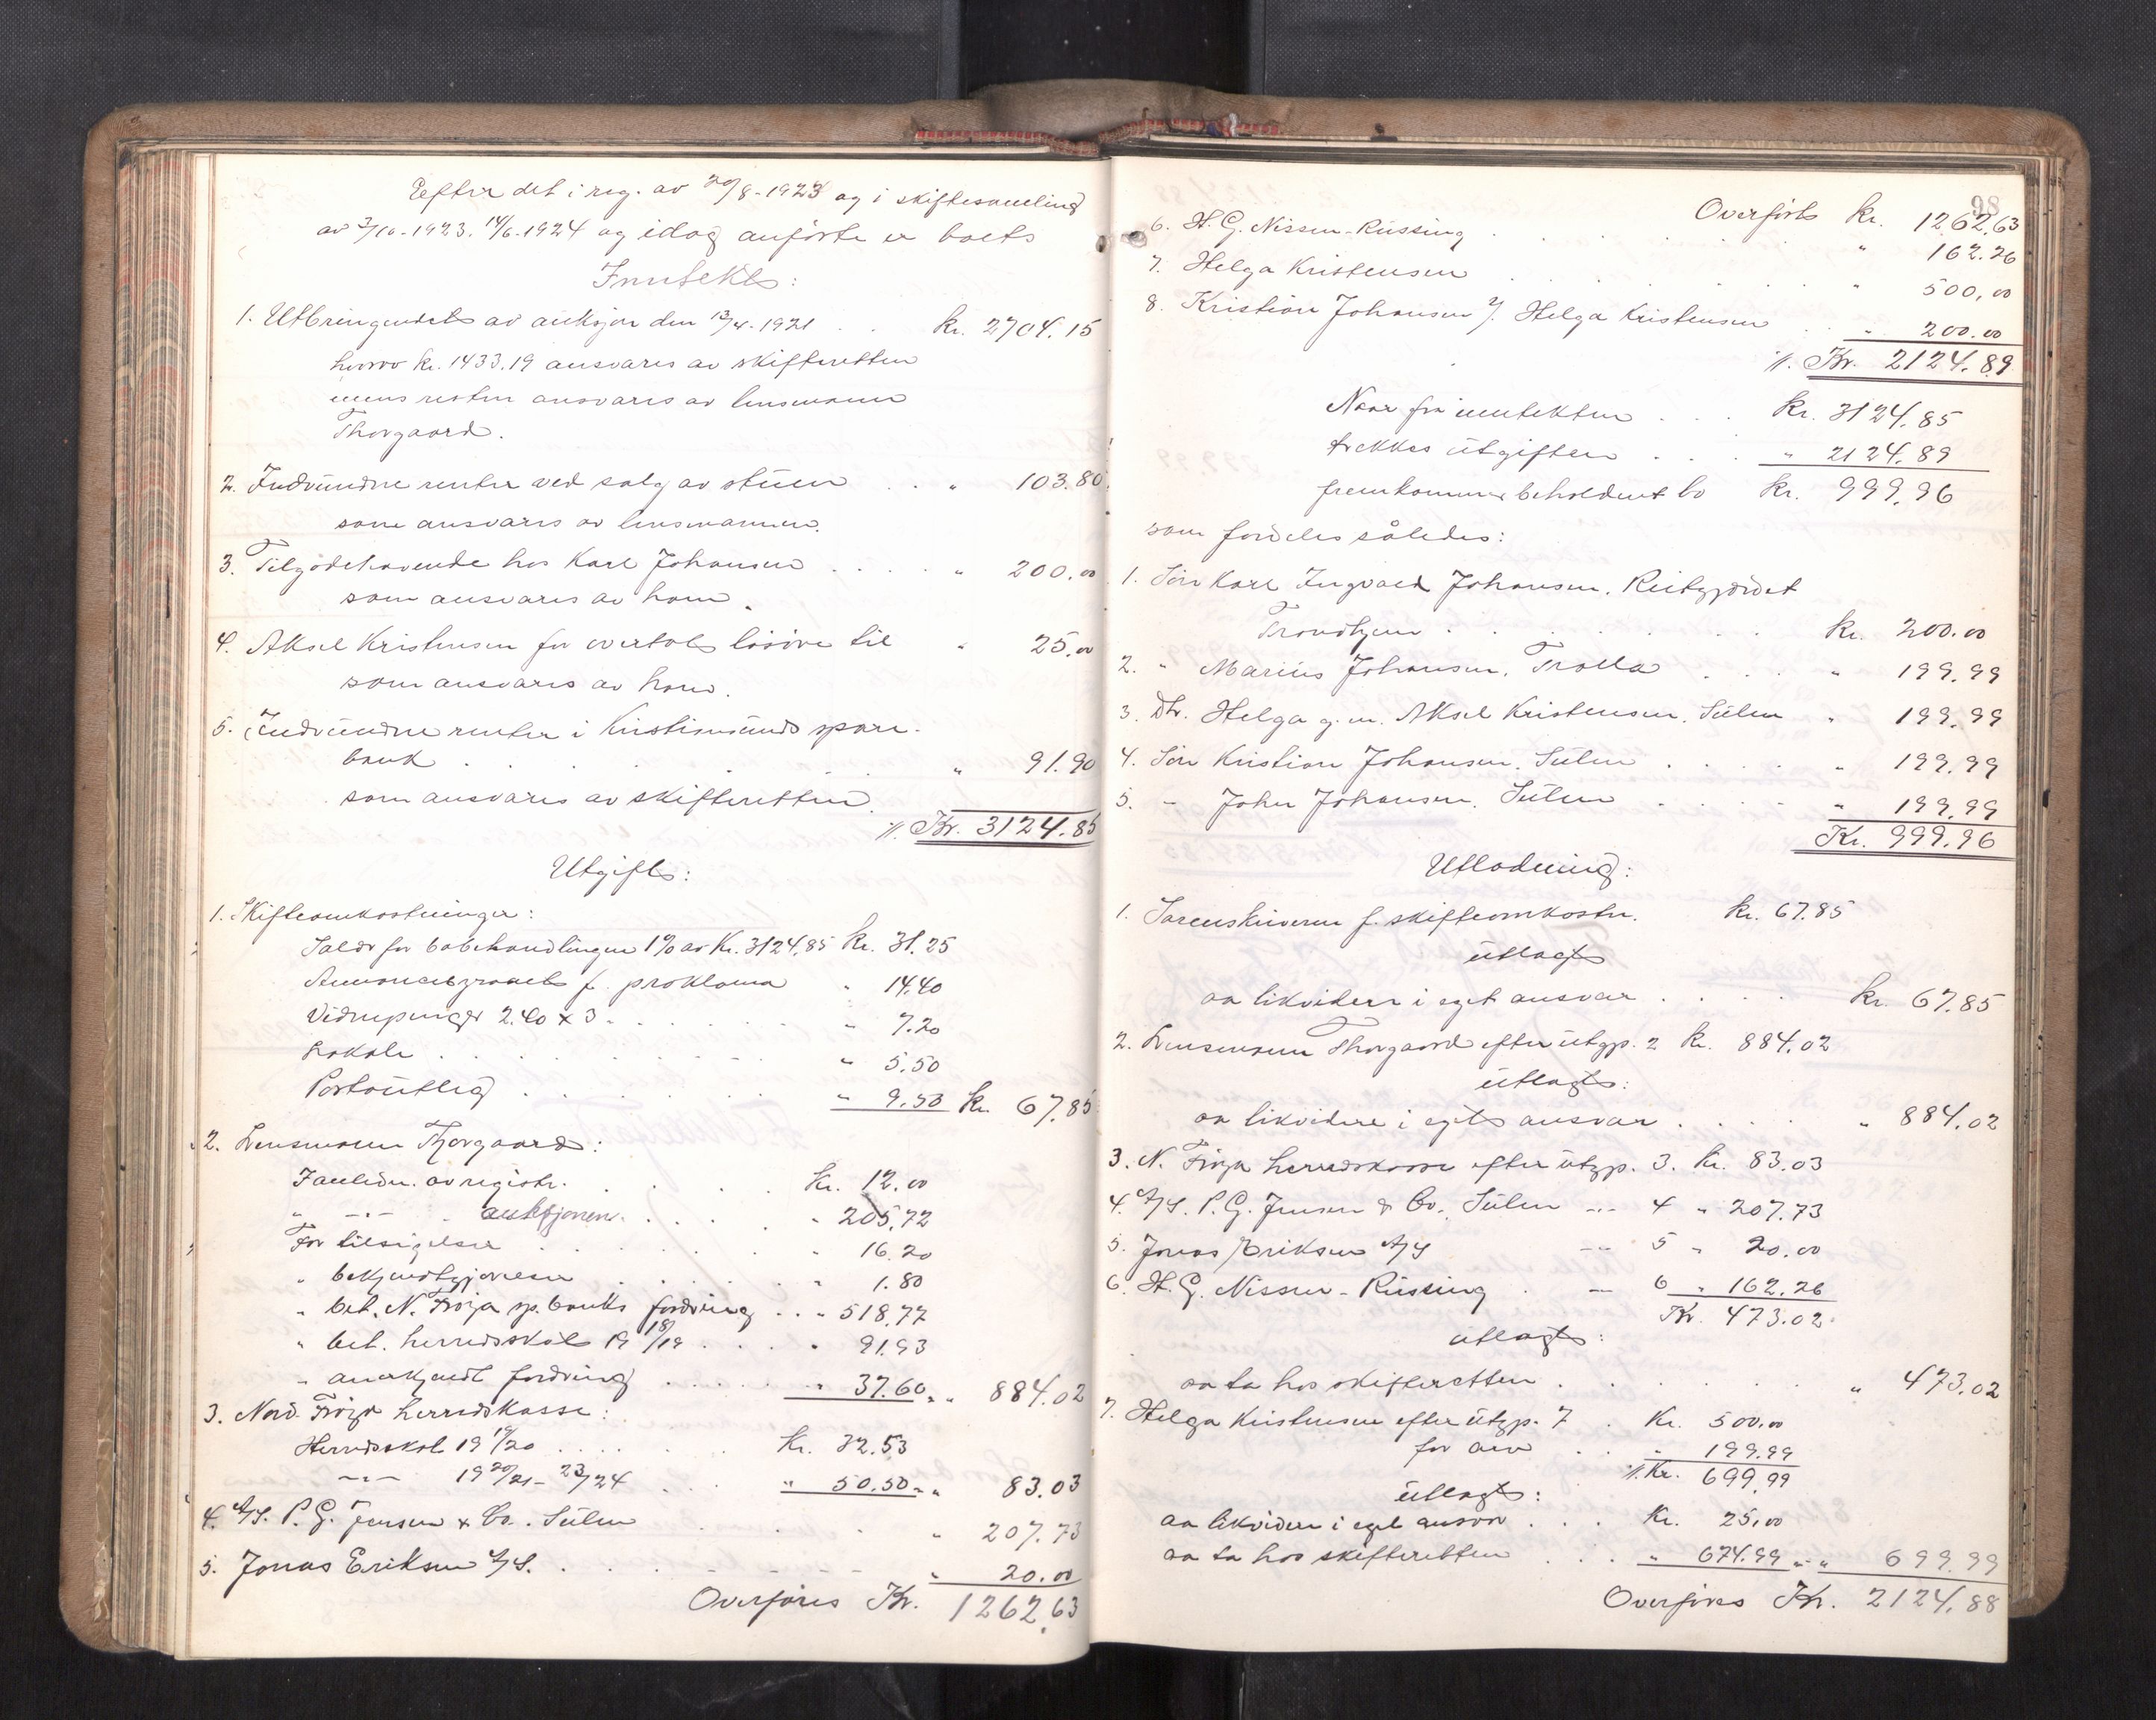 Efter det i reg. av 20/8-1923 og i skiftesamling
av 2/10-1923. 14/6-1924 og idag anførte er boets
Inntekt:
1. Utbringendet av auksjon den 13/4-1921 . . kr. 2704.15
hvorav kr. 1433.19 ansvares av skifteretten
mens resten ansvares av lensmann
Thorgaard.
2. Indvundne renter ved salg av stuen . . " 103.80
som ansvares av lensmannen.
3. Tilgodehavende hos Karl Johansen . . . . " 200.00
som ansvares av ham.
4. Aksel Kristensen for overtat løsøre til " 25.00
som ansvares av ham.
5. Indvundne renter i Kristiansunds spare-
bank . . . . . " 91.90
som ansvares av skifteretten
./. Kr. 3124.85
Utgift:
1. Skifteomkostninger:
Salær for bobehandlingen 1% av Kr. 3124.85 kr. 31.25
f. proklama " 14.40
2.40 x 3 . . . . . " 7.20
Lokale . . . . . . " 5.50
Portoutlæg . . . . . . " 9.50 kr. 67.85
2. Lensmann Thorgaard:
av registr. . . . . kr. 12.00
" -"- . auksjonen . . . . " 205.72
For tilsigelser . . . . . " 16.20
" bekjendtgjørelser . . . . . " 1.80
" bet. N. Frøya sp.banks fordring . . " 518.77
" bet. herredsskat 19 18/19 . . . . " 91.93
" anerkjendt fordring . . . . . " 37.60 " " 884.02
3. Nord-Frøya herredskasse:
Herredsskat 19 19/20 . . . . . . Kr. 32.53
-"- 19 20/21 - 23/24 . . . " 50.50 " " 83.03
4. A/S. P. G. Jensen & Co. Sulen . . . . . " 207.73
5. Jonas Eriksen A/S. . . . . . . . " 20.00
Overføres Kr. 1262.63
98
Overført kr. 1262.63
6. H. G. Nissen-Rüssing . . . . . . " 162.26
7. Helga Kristensen . . . . . . . " 500.00
8. Kristian Johansen v/. Helga Kristensen . . " 200.00
./. Kr. 2124.89
Naar fra inntekten . . . Kr. 3124.85
trekkes utgiften . . . " 2124.89
fremkommer beholdent bo Kr. 999.96
som fordeles således:
1. Søn Karl Ingvald Johansen,
Trondhjem . . . . . . . kr. 200.00
2. " Marius Johansen, Trolla . . . " 199.99
3. Dtr. Helga g.m. Aksel Kristensen, Sulen " 199.99
4. Søn Kristian Johansen, Sulen . . . . " 199.99
5. " John Johansen, Sulen . . . . . " 199.99
Kr. 999.96
Utlodning:
1. Sorenskriveren f. skifteomkostn. kr. 67.85
utlagt
aa likvidere i eget ansvar . . . . kr. 67.85
2. Lensmann Thorgaard efter utgp. 2 kr. 884.02
utlagt:
aa likvidere i eget ansvar . . . . " 884.02
3. N. Frøya herredskasse efter utgp. 3. kr. 83.03
4. A/S. P. G. Jensen & Co. Sulen -"- 4 " 207.73
5. Jonas Eriksen A/S -"- 5 " 20.00
6. H. G. Nissen-Rüssing . -"- 6 " 162.26
Kr. 473.02
utlagt:
aa ta hos skifteretten . . . . . . " 473.02
7. Helga Kristensen efter utgp. 7 . Kr. 500.00
for arv . . " 199.99
./. Kr. 699.99
utlagt:
aa likvidere i eget ansvar . . . Kr. 25.00
aa ta hos skifteretten . . . " 674.99 " " 699.99
Overføres Kr. 2124.88